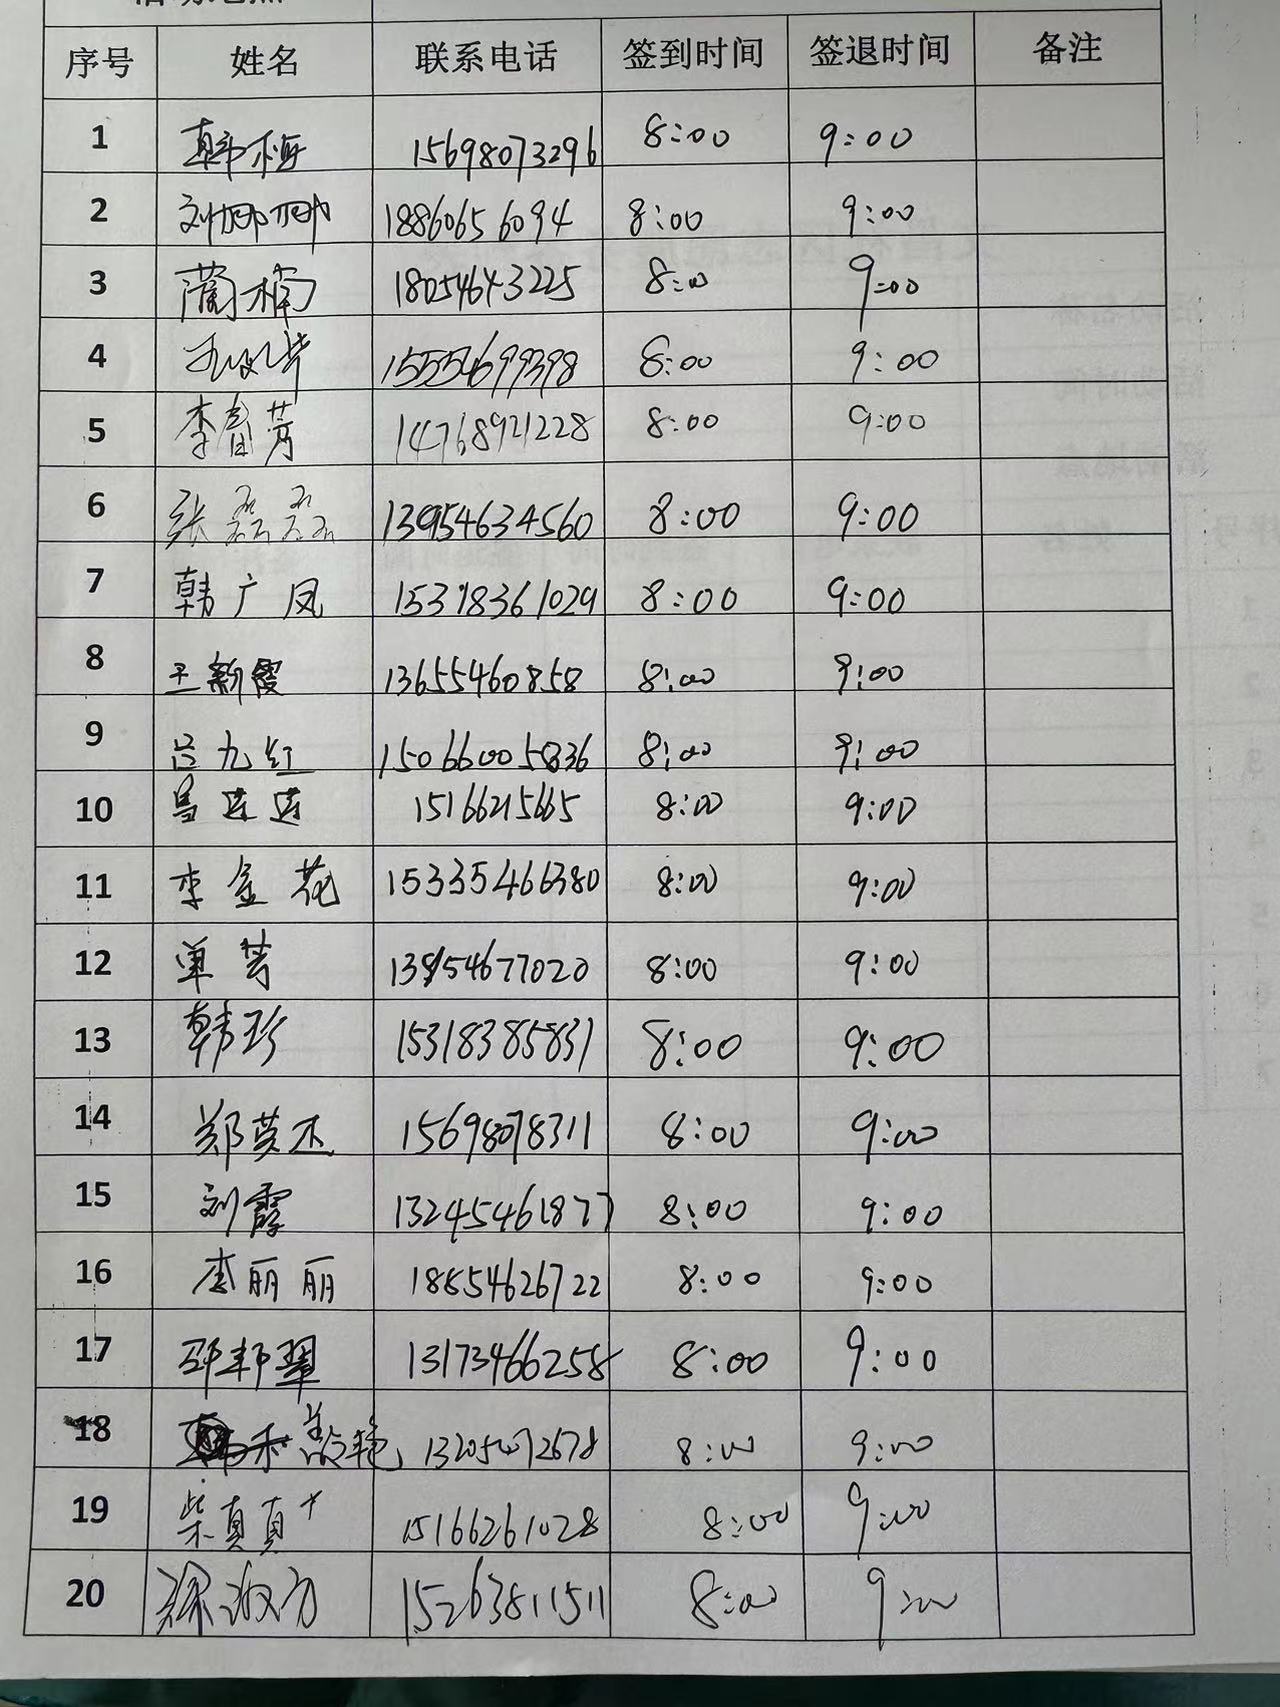 序号 姓名 联系电话 签到时间 签退时间 备注
1 韩梅 15698073296 8:00 9:00
2 刘娜娜 18860656094 8:00 9:00
3 蔺楠 18054643225 8:00 9:00
4 15554699398 8:00 9:00
5 李春芳 14768921228 8:00 9:00
6 张磊磊 13954634560 8:00 9:00
7 韩广凤 15318361029 8:00 9:00
8 王新霞 13655460858 8:00 9:00
9 吕九红 15066005836 8:00 9:00
10 马莲莲 15166215665 8:00 9:00
11 李金花 15335466380 8:00 9:00
12 单芳 13954677020 8:00 9:00
13 韩珍 15318385831 8:00 9:00
14 郑英杰 15698078311 8:00 9:00
15 刘霞 13245461877 8:00 9:00
16 李丽丽 18654626722 8:00 9:00
17 邵邦翠 13173466258 8:00 9:00
18 8:00 9:00
19 柴真真 15166261028 8:00 9:00
20 15263811511 8:00 9:00